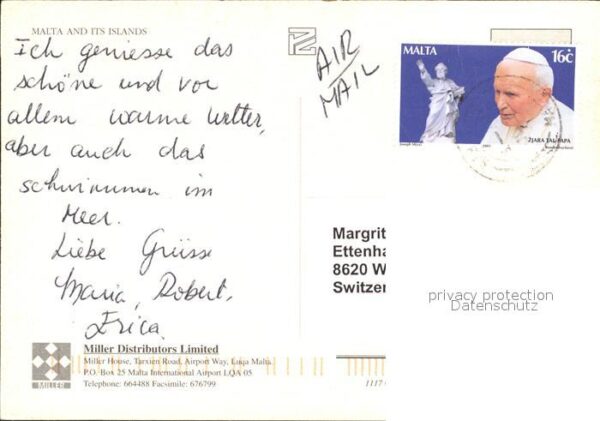 MALTA AND ITS ISLANDS
Ich geniesse das
schöne und vor
allem warme Wetter,
aber auch das
schwimmen im
Meer.
Liebe Grüsse
Maria, Robert,
Erica
AIR
MAIL
MALTA
16c
ŻJARA TAL-PAPA
Margrit
Ettenha
8620 W
Switzer
privacy protection
Datenschutz
MILLER
Miller Distributors Limited
Miller House, Tarxien Road, Airport Way, Luqa Malta.
P.O. Box 25 Malta International Airport LQA 05
Telephone: 664488 Facsimile: 676799
1117